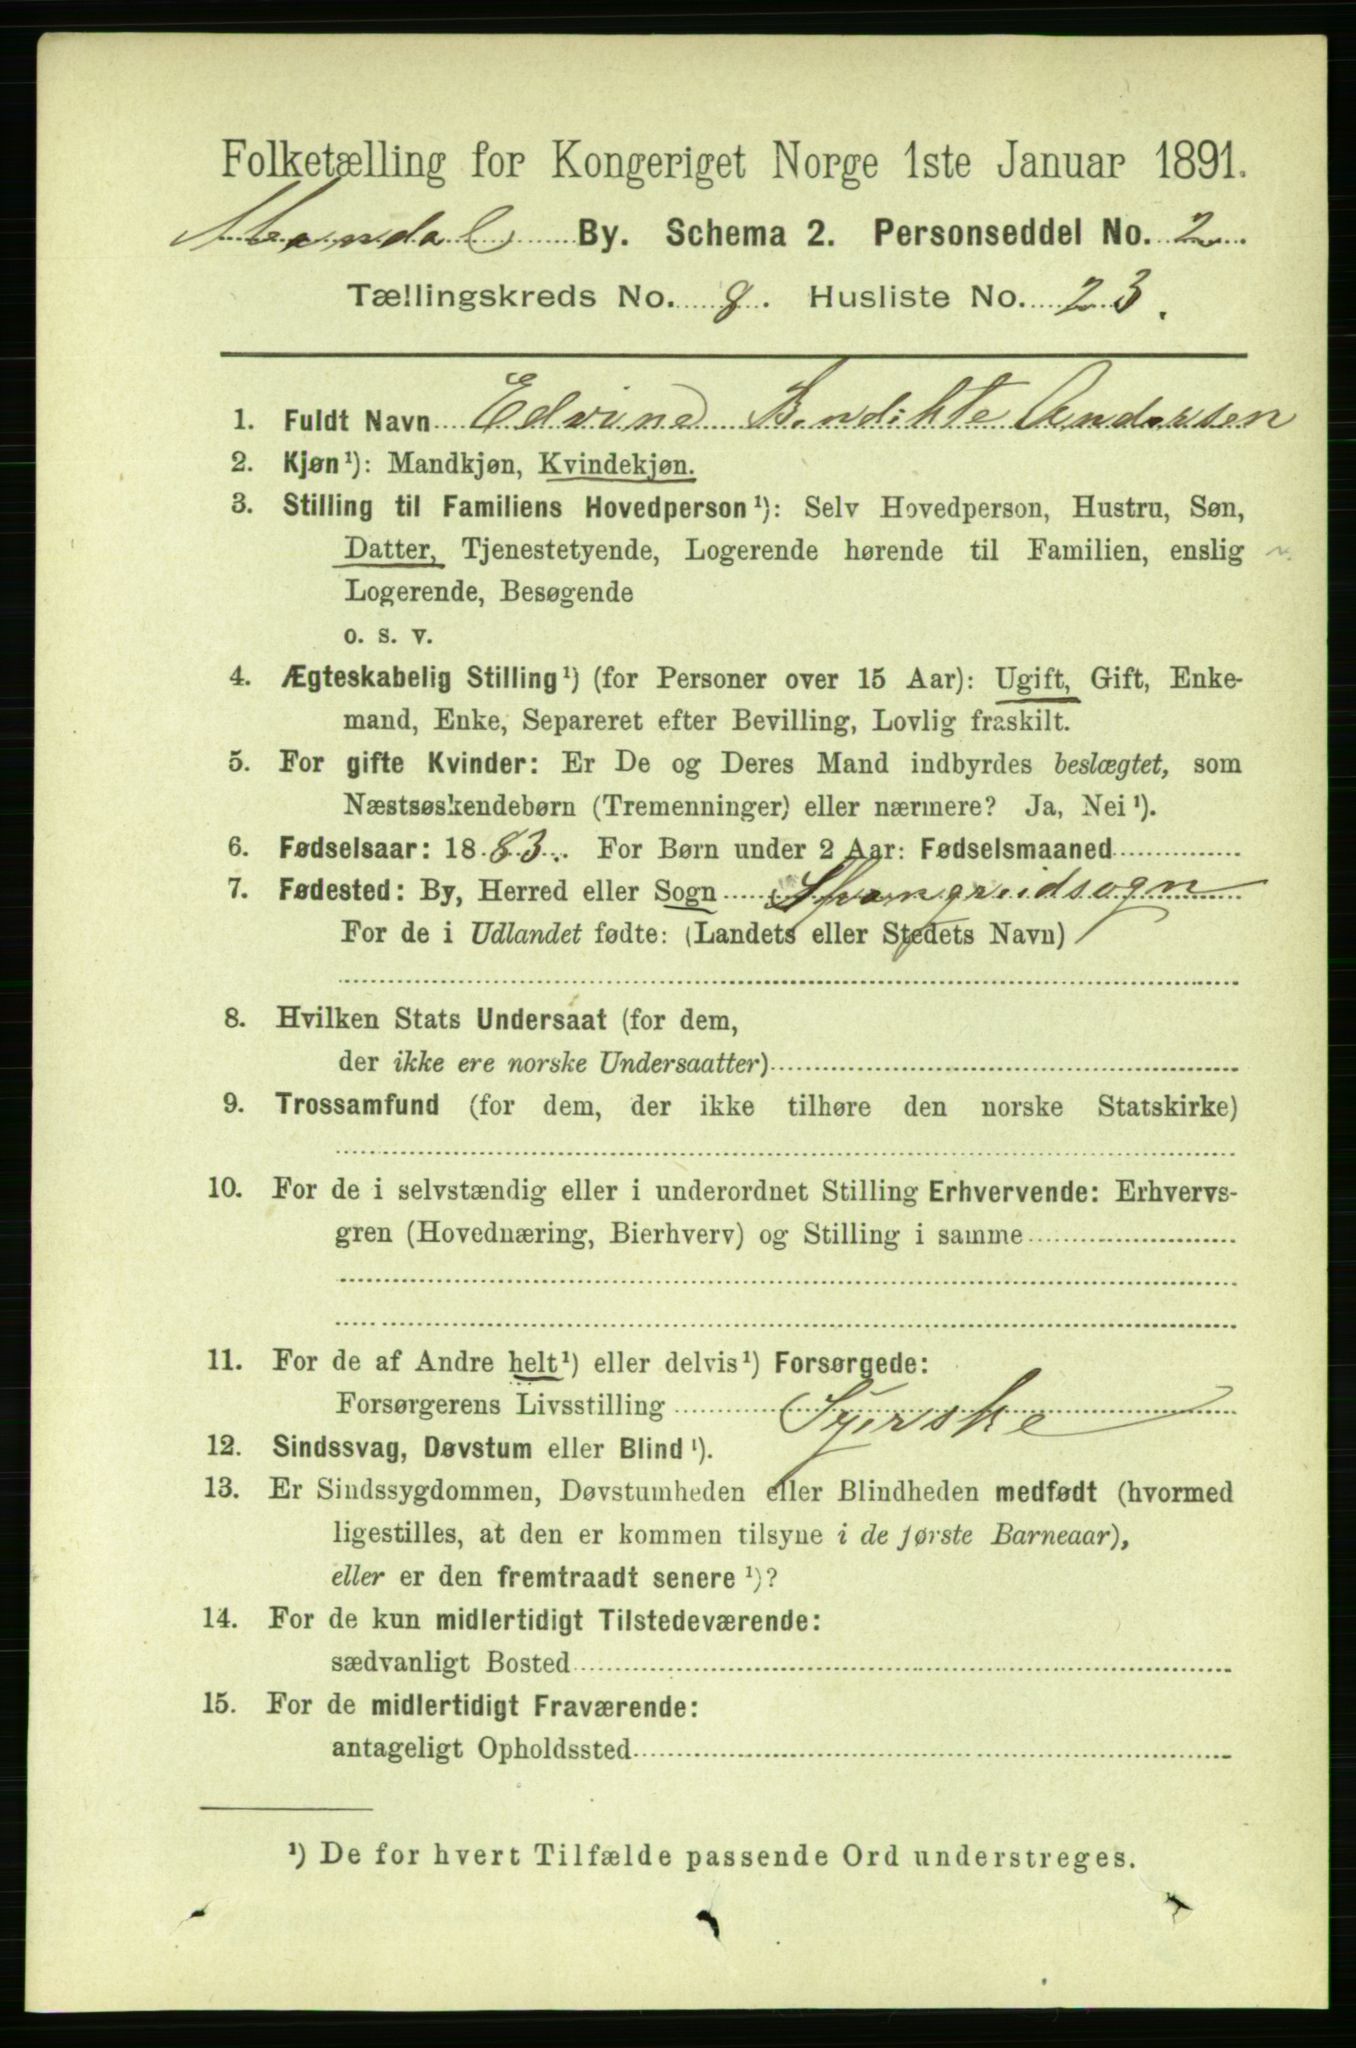 Folketælling for Kongeriget Norge 1ste Januar 1891.
Mandal By. Schema 2. Personseddel No. 2
Tællingskreds No. 8. Husliste No. 23.
1. Fuldt Navn Edvine Bendikte Andersen
2. Kjøn¹): Mandkjøn, Kvindekjøn.
3. Stilling til Familiens Hovedperson¹): Selv Hovedperson, Hustru, Søn,
Datter, Tjenestetyende, Logerende hørende til Familien, enslig
Logerende, Besøgende
o. s. v.
4. Ægteskabelig Stilling¹) (for Personer over 15 Aar): Ugift, Gift, Enke-
mand, Enke, Separeret efter Bevilling, Lovlig fraskilt.
5. For gifte Kvinder: Er De og Deres Mand indbyrdes beslægtet, som
Næstsøskendebørn (Tremenninger) eller nærmere? Ja, Nei¹).
6. Fødselsaar: 1883. For Børn under 2 Aar: Fødselsmaaned
7. Fødested: By, Herred eller Sogn Spangreidsogn
For de i Udlandet fødte: (Landets eller Stedets Navn)
8. Hvilken Stats Undersaat (for dem,
der ikke ere norske Undersaatter)
9. Trossamfund (for dem, der ikke tilhøre den norske Statskirke)
10. For de i selvstændig eller i underordnet Stilling Erhvervende: Erhvervs-
gren (Hovednæring, Bierhverv) og Stilling i samme
11. For de af Andre helt¹) eller delvis¹) Forsørgede:
Forsørgerens Livsstilling Syerske
12. Sindssvag, Døvstum eller Blind¹).
13. Er Sindssygdommen, Døvstumheden eller Blindheden medfødt (hvormed
ligestilles, at den er kommen tilsyne i de første Barneaar),
eller er den fremtraadt senere¹)?
14. For de kun midlertidigt Tilstedeværende:
sædvanligt Bosted
15. For de midlertidigt Fraværende:
antageligt Opholdssted
¹) De for hvert Tilfælde passende Ord understreges.